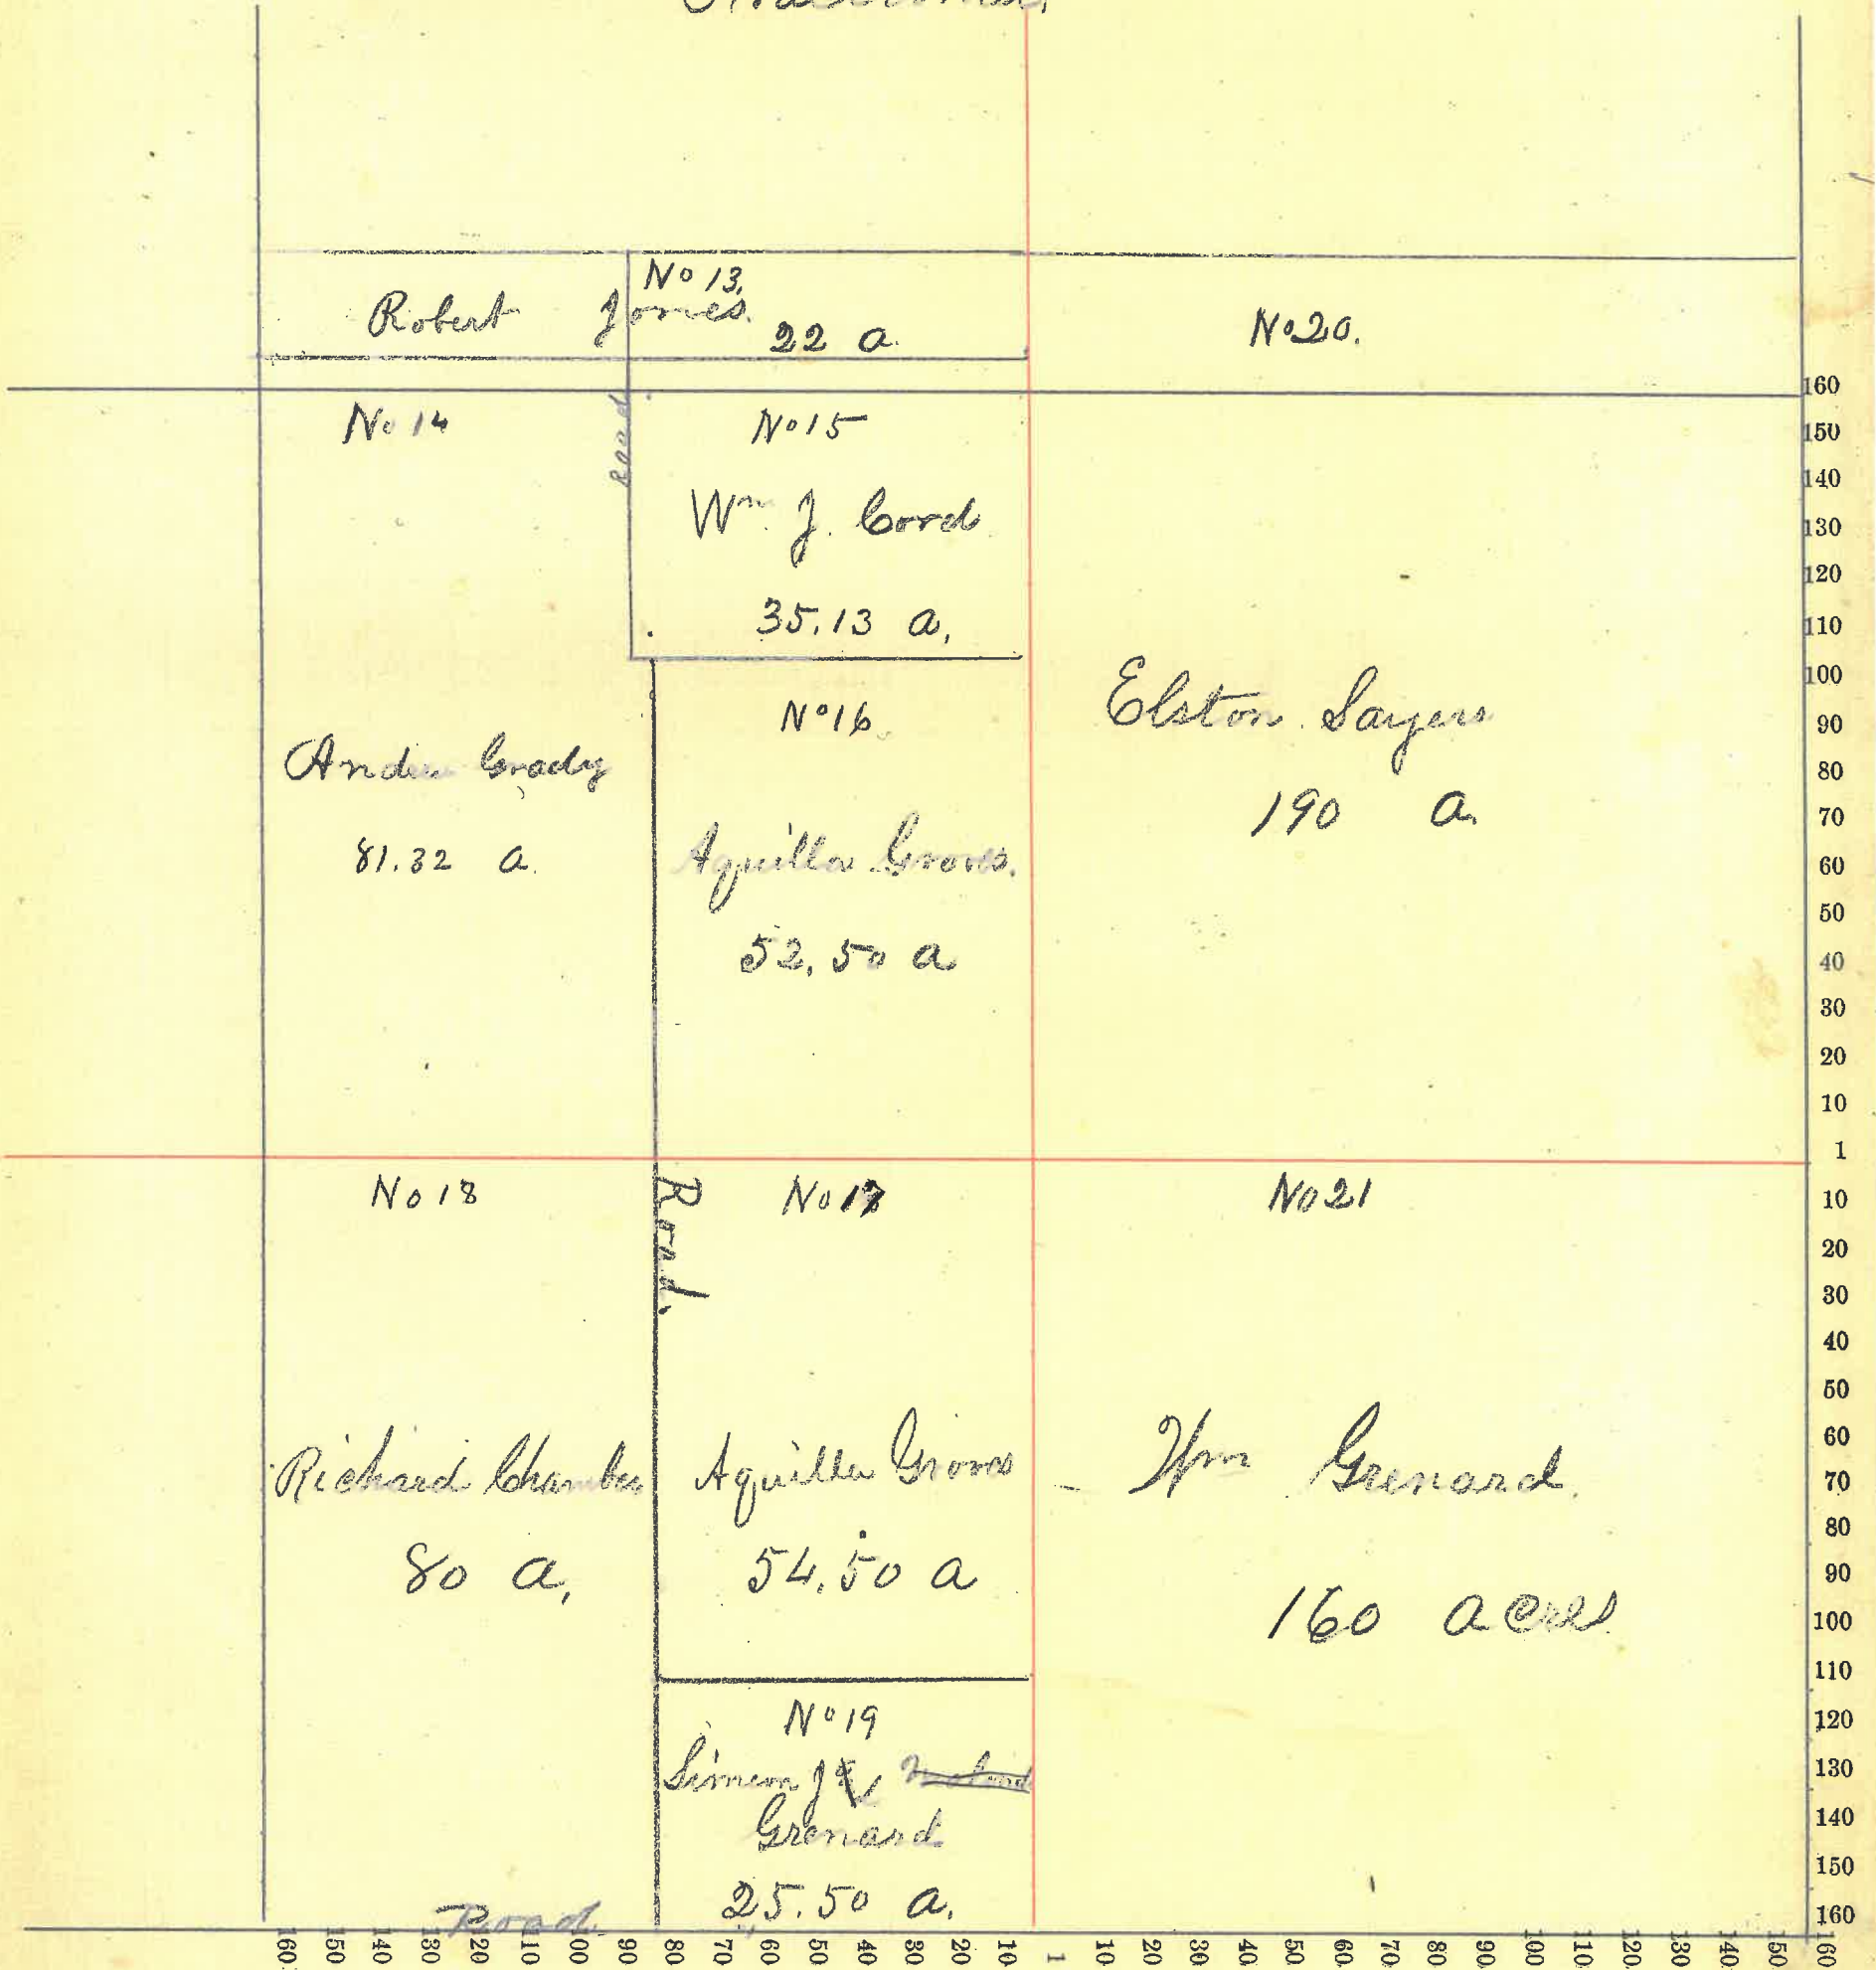 No 13.
Robert Jones.
22 a.
No 20.
Road
No 14
No 15
Wm. J. Cord
35.13 a.
Elston Sayers
190 a.
No 16.
Grady
81.32 a.
Aquilla Groves.
52.50 a
No 18
Road.
No 17
No 21
Richard Chamber
80 a.
Aquilla Groves
54.50 a
Wm Grenard.
160 acres
No 19
Simeon J
Grenard
25.50 a.
Road
160
150
140
130
120
110
100
90
80
70
60
50
40
30
20
10
1
10
20
30
40
50
60
70
80
90
100
110
120
130
140
150
160
160 150 140 130 120 110 100 90 80 70 60 50 40 30 20 10 1 10 20 30 40 50 60 70 80 90 100 110 120 130 140 150 160